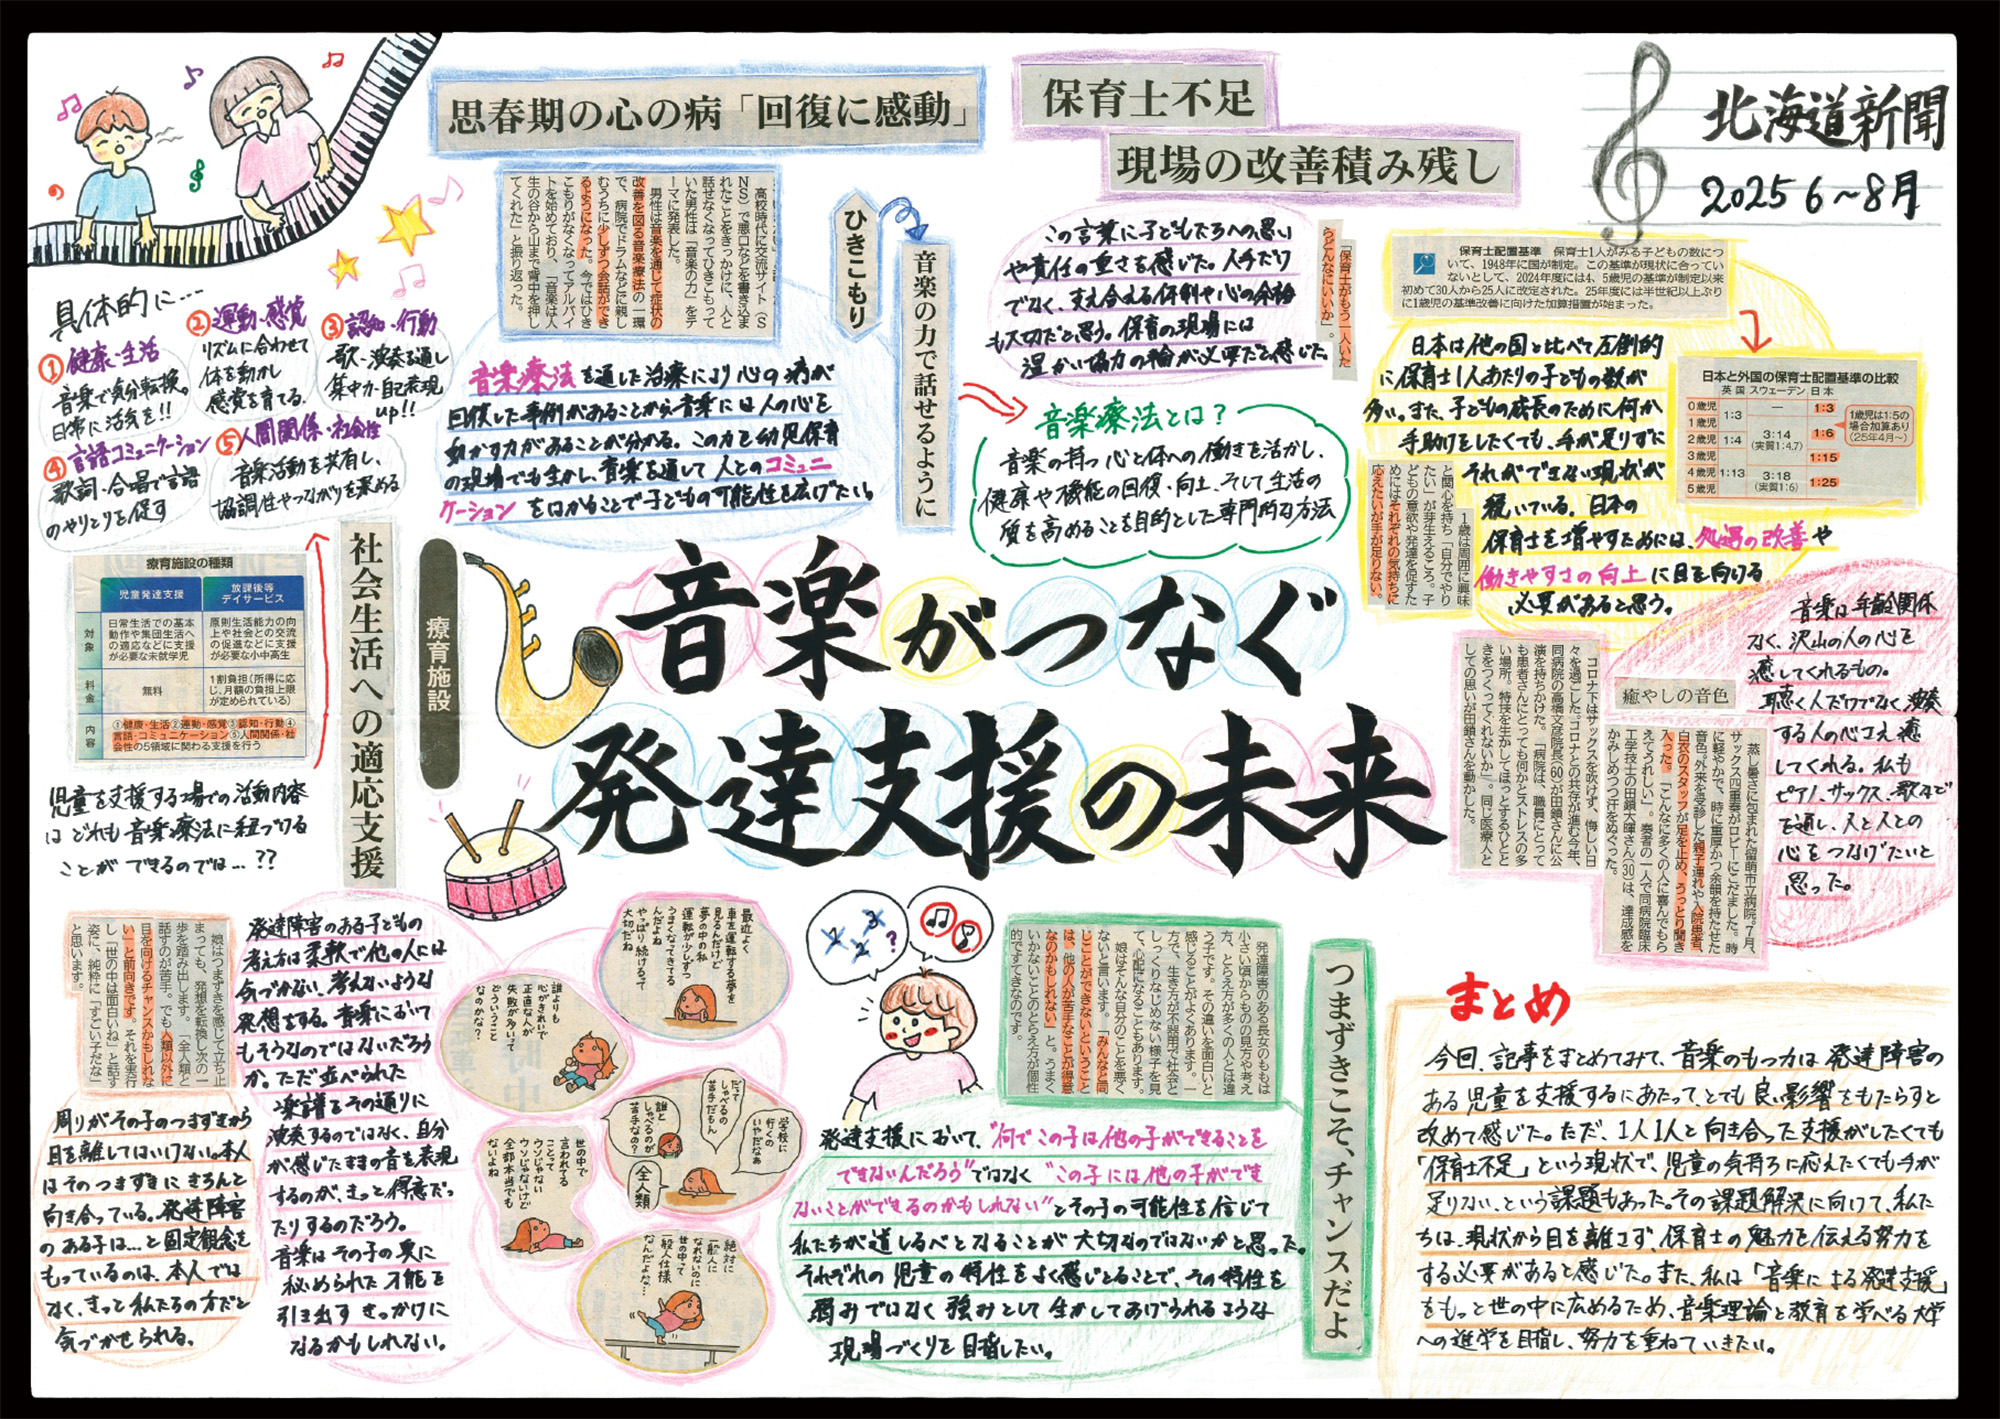 北海道新聞
2025 6〜8月
音楽がつなぐ
発達支援の未来
思春期の心の病「回復に感動」
高校時代に交流サイト(S
NS)で悪口などを書き込ま
れたことをきっかけに、人と
話せなくなってひきこもって
いた男性は「音楽の力」をテ
ーマに発表した。
男性は音楽を通じて症状の
改善を図る音楽療法の一環
で、病院でドラムなどに親し
むうちに少しずつ会話ができ
るようになった。今ではひき
こもりがなくなってアルバイ
トを始めており、「音楽は人
生の谷から山まで背中を押し
てくれた」と振り返った。
ひきこもり
音楽の力で話せるように
音楽療法を通した治療により心の病が
回復した事例があることから音楽には人の心を
動かす力があることが分かる。この力を幼児保育
の現場でも生かし、音楽を通して人とのコミュニ
ケーションをはかることで子どもの可能性を広げたい。
音楽療法とは?
音楽の持つ心と体への働きを活かし、
健康や機能の回復・向上、そして生活の
質を高めることを目的とした専門的な方法
保育士不足
現場の改善積み残し
「保育士がもう一人いた
らどんなにいいか」。
この言葉に子どもたちへの思い
や責任の重さを感じた。人手だけ
でなく、支え合える体制や心の余裕
も大切だと思う。保育の現場には
温かい協力の輪が必要だと感じた。
保育士配置基準 保育士1人がみる子どもの数につ
いて、1948年に国が制定。この基準が現状に合ってい
ないとして、2024年度には4、5歳児の基準が制定以来
初めて30人から25人に改定された。25年度には半世紀以上ぶり
に1歳児の基準改善に向けた加算措置が始まった。
日本と外国の保育士配置基準の比較
英国 スウェーデン 日本
0歳児 1:3 — 1:3
1歳児 1:6
2歳児 1:4 3:14(実質1:4.7)
3歳児 1:15
4歳児 1:13 3:18(実質1:6) 1:25
5歳児
1歳児は1:5の
場合加算あり
(25年4月〜)
日本は他の国と比べて圧倒的
に保育士1人あたりの子どもの数が
多い。また、子どもの成長のために何か
手助けをしたくても、手が足りずに
それができない現状が
続いている。日本の
保育士を増やすためには、処遇の改善や
働きやすさの向上に目を向ける
必要があると思う。
1歳は周囲に興味
と関心を持ち「自分でやり
たい」が芽生えるころ。子
どもの意欲や発達を促すた
めにはそれぞれの気持ちに
応えたいが手が足りない。
癒やしの音色
コロナ下はサックスを吹けず、悔しい日
々を過ごした。コロナとの共存が進む今年、
同病院の高橋文彦院長(60)が田鎖さんに公
演を持ちかけた。「病院は、職員にとって
も患者さんにとっても何かとストレスの多
い場所。特技を生かしてほっとするひとと
きをつくってくれないか」。同じ医療人と
しての思いが田鎖さんを動かした。
蒸し暑さに包まれた留萌市立病院で7月、
サックス四重奏がロビーにこだました。時
に軽やかで、時に重厚かつ余韻を持たせた
音色。外来を受診した親子連れや入院患者、
白衣のスタッフが足を止め、うっとり聞き
入った。「こんなに多くの人に喜んでもら
えてうれしい」。奏者の一人で同病院臨床
工学技士の田鎖大暉さん(30)は、達成感を
かみしめつつ汗をぬぐった。
音楽は年齢関係
なく、沢山の人の心を
癒してくれるもの。
聴く人だけでなく演奏
する人の心さえ癒
してくれる。私も
ピアノ、サックス、歌などで
を通し、人と人との
心をつなげたいと
思った。
具体的に…
①健康・生活
音楽で気分転換。
日常に活気を!!
②運動・感覚
リズムに合わせて
体を動かし
感覚を育てる。
③認知・行動
歌・演奏を通し
集中力・自己表現
up!!
④言語コミュニケーション
歌詞・合唱で言語
のやりとりを促す
⑤人間関係・社会性
音楽活動を共有し、
協調性やつながりを深める
療育施設の種類
児童発達支援
放課後等デイサービス
対象
日常生活での基本
動作や集団生活へ
の適応などに支援
が必要な未就学児
原則生活能力の向
上や社会との交流
の促進などに支援
が必要な小中高生
料金
無料
1割負担(所得に応
じ、月額の負担上限
が定められている)
内容
①健康・生活②運動・感覚③認知・行動④
言語・コミュニケーション⑤人間関係・社
会性の5領域に関わる支援を行う
社会生活への適応支援
療育施設
児童を支援する場での活動内容
はどれも音楽療法に紐づける
ことができるのでは…??
娘はつまずきを感じて立ち止
まっても、発想を転換し次の一
歩を踏み出します。「全人類と
話すのが苦手。でも人類以外に
目を向けるチャンスかもしれな
い」と前向きです。それを実行
し「世の中は面白いね」と話す
姿に、純粋に「すごい子だな」
と思います。
周りがその子のつまずきから
目を離してはいけない。本人
はそのつまずきにきちんと
向き合っている。発達障害
のある子は…と固定観念を
もっているのは、本人では
なく、きっと私たちの方だと
気づかせられる。
発達障害のある子どもの
考え方は柔軟で他の人には
気づかない、考えないような
発想をする。音楽において
もそうなのではないだろう
か。ただ並べられた
楽譜をその通りに
演奏するのではなく、自分
が感じたままの音を表現
するのが、きっと得意だっ
たりするのだろう。
音楽はその子の奥に
秘められた才能を
引き出すきっかけに
なるかもしれない。
最近よく
車を運転する夢を
見るんだけど
夢の中の私
運転が少しずつ
うまくなってきてる
んだよね
やっぱり続けるって
大切だね
誰よりも
心がきれいで
正直な人が
失敗が多いって
どういうこと
なのかな?
学校に
行くの
いやだなあ
だって
しゃべるの
苦手だもん
誰と
しゃべるのが
苦手なの?
全人類
世の中で
言われてる
ことって
ウソじゃない
ウソじゃないけど
全部本当でも
ないよね
絶対に
一般人に
なれないのに
世の中って
一般人仕様
なんだよな…
つまずきこそ、チャンスだよ
発達障害のある長女のももは
小さい頃からものの見方や考え
方、とらえ方が多くの人とは違
う子です。その違いを面白いと
感じることがよくあります。一
方で、生き方が不器用で社会と
しっくりなじめない様子を見
て、心配になることもあります。
娘はそんな自分のことを悪く
ないと言います。「みんなと同
じことができないということ
は、他の人が苦手なことが得意
なのかもしれない」と。うまく
いかないことのとらえ方が個性
的ですてきなのです。
1 2 3 2 ?
発達支援において、“何でこの子は他の子ができることを
できないんだろう”ではなく“この子には他の子ができ
ないことができるのかもしれない”とその子の可能性を信じて
私たちが道しるべとなることが大切なのではないかと思った。
それぞれの児童の特性をよく感じとることで、その特性を
弱みではなく強みとして生かしてあげられるような
現場づくりを目指したい。
まとめ
今回、記事をまとめてみて、音楽のもつ力は発達障害の
ある児童を支援するにあたって、とても良い影響をもたらすと
改めて感じた。ただ、1人1人と向き合った支援がしたくても
「保育士不足」という現状で、児童の気持ちに応えたくても手が
足りない、という課題もあった。その課題解決に向けて、私た
ちは、現状から目を離さず、保育士の魅力を伝える努力を
する必要があると感じた。また、私は「音楽による発達支援」
をもっと世の中に広めるため、音楽理論と教育を学べる大学
への進学を目指し、努力を重ねていきたい。